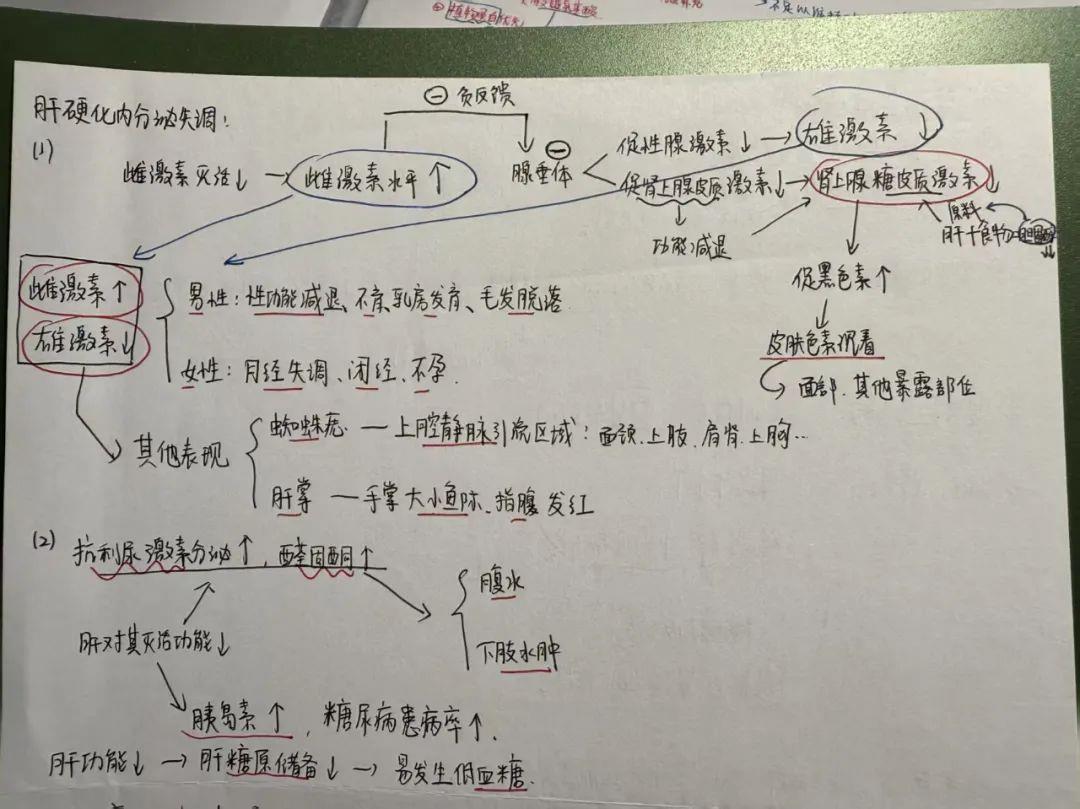 植物蛋白优先
肝硬化内分泌失调:
(1)
⊖ 负反馈
雌激素灭活↓ → 雌激素水平↑
腺垂体 ⊖
促性腺激素↓ → 雄激素↓
促肾上腺皮质激素↓ → 肾上腺糖皮质激素↓
功能减退
原料
肝+食物
促黑色素↑
皮肤色素沉着
面部、其他暴露部位
雌激素↑
雄激素↓
男性:性功能减退、不育、乳房发育、毛发脱落
女性:月经失调、闭经、不孕.
其他表现
蜘蛛痣 — 上腔静脉引流区域:面颈、上肢、肩背、上胸…
肝掌 — 手掌大小鱼际、指腹发红
(2)
抗利尿激素分泌↑,醛固酮↑
腹水
下肢水肿
肝对其灭活功能↓
胰岛素↑,糖尿病患病率↑.
肝功能↓ → 肝糖原储备↓ → 易发生低血糖.